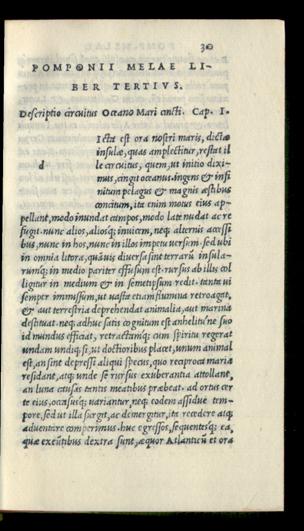 30
POMPONII MELAE LI-
BER TERTIVS.
Descriptio circuitus Oceano Mari cincti. Cap. I.
d
Icta est ora nostri maris, dictæ
insulæ, quas amplectitur, restat il
le circuitus, quem, ut initio dixi-
mus, cingit oceanus. ingens & infi
nitum pelagus & magnis æstibus
concitum, ita enim motus eius ap-
pellant, modo inundat campos, modo late nudat ac re
fugit. nunc alios, aliosq; inuicem, neq; alternis accessi
bus, nunc in hos, nunc in illos impetu uersum. sed ubi
in omnia litora, quāuis diuersa sint terrarū insula-
rumq; in medio pariter effusum est. rursus ab illis col
ligitur in medium & in semetipsum redit. tanta ui
semper immissum, ut uasta etiam flumina retroagat,
& aut terrestria deprehendat animalia, aut marina
destituat. neq; adhuc satis cognitum est anhelitu ne suo
id mundus efficiat, retractamq; cum spiritu regerat
undam undiq; si, ut doctioribus placet, unum animal
est, an sint depressi aliqui specus, quo reciprocata maria
residant, atq; unde se rursus exuberantia attollant,
an luna causas tantis meatibus præbeat. ad ortus cer
te eius, occasusq; uariantur, neq; eodem assidue tem-
pore, sed ut illa surgit, ac demergitur, ita recedere atq;
aduentare comperimus. huc egressos, sequentesq; ea,
quæ exeūtibus dextra sunt, æquor Atlanticū et ora